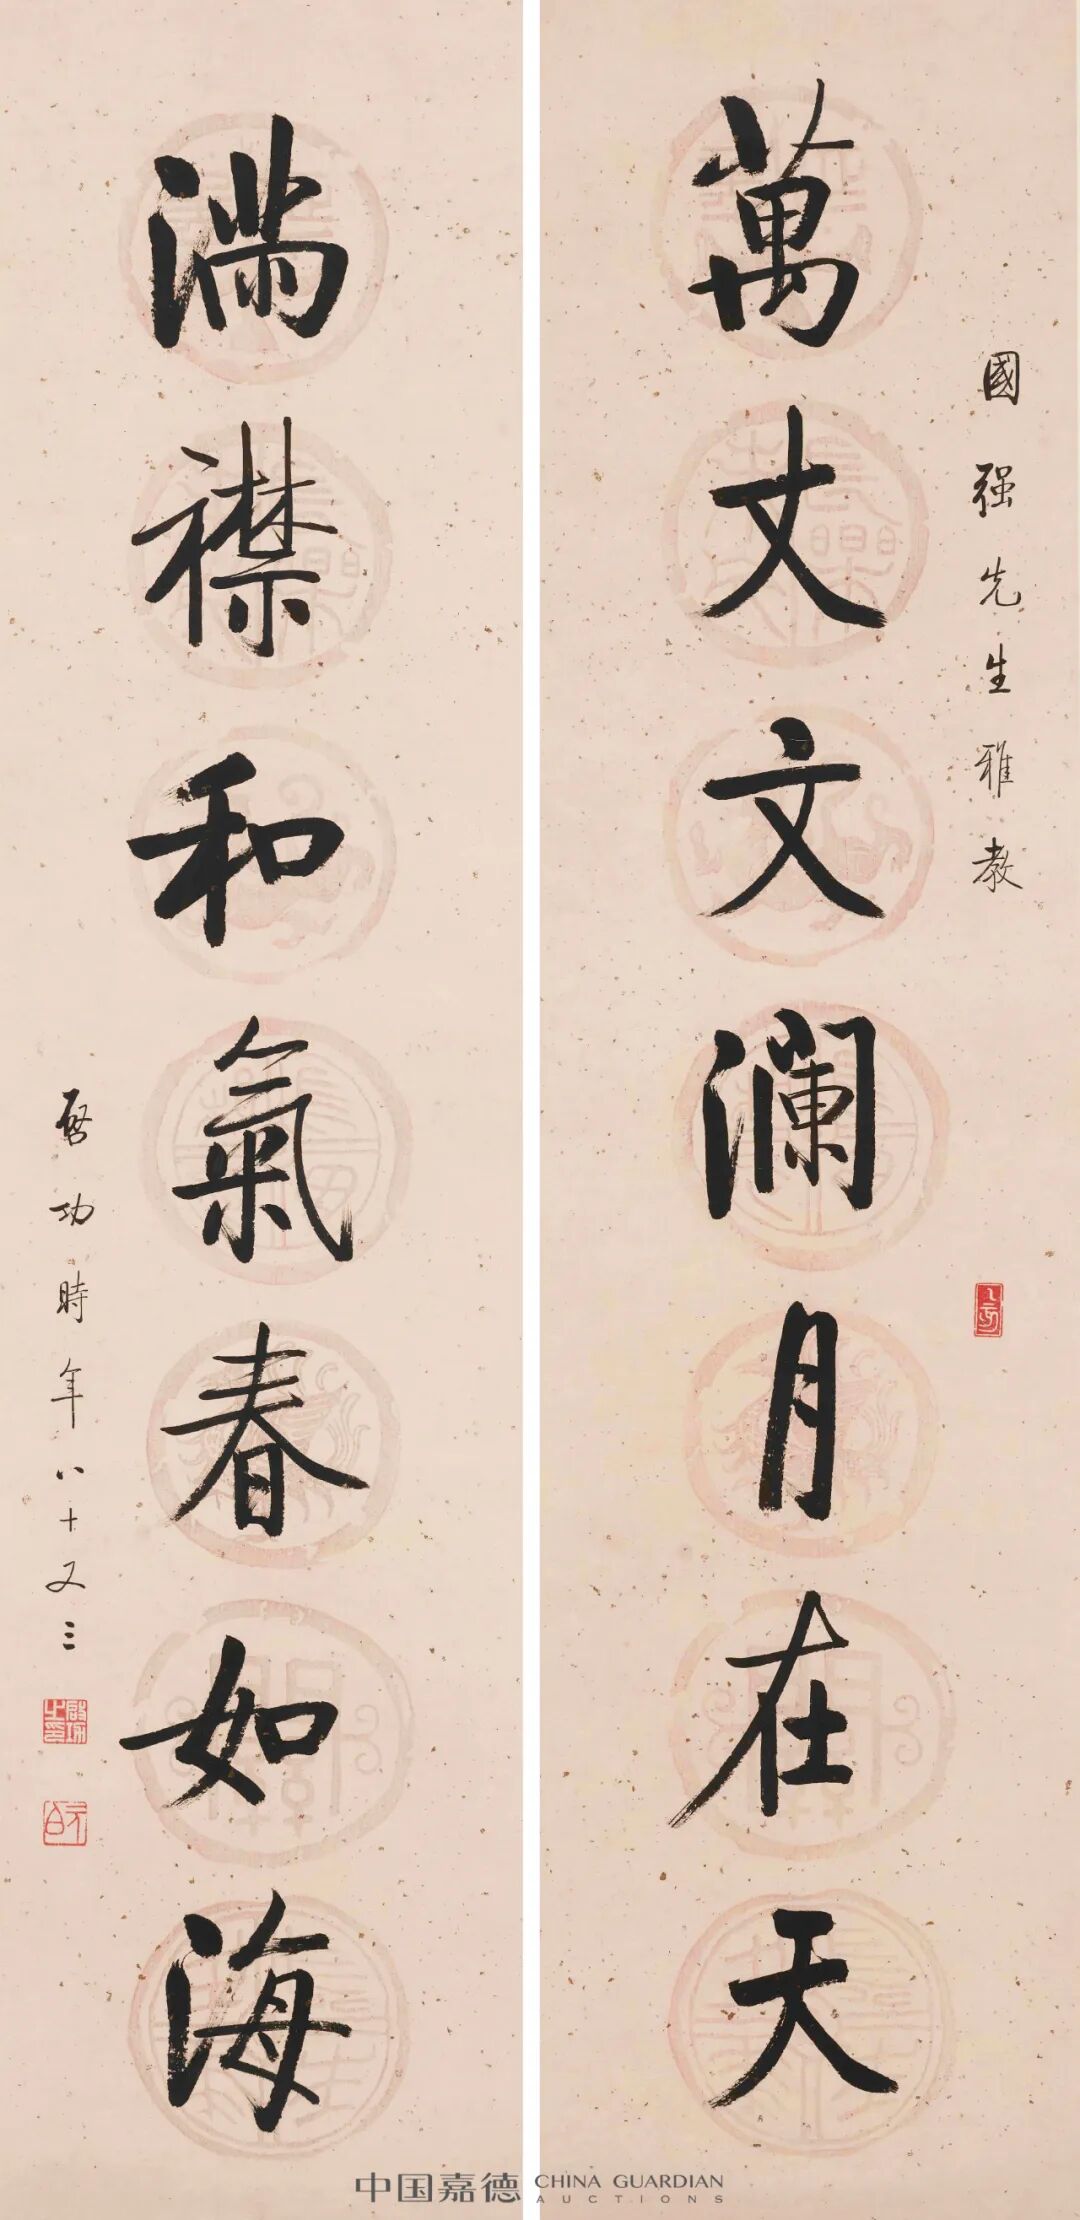 國强先生雅教
萬丈文瀾月在天
滿襟和氣春如海
啓功時年八十又三
啟功之印
元白
中国嘉德 CHINA GUARDIAN
AUCTIONS